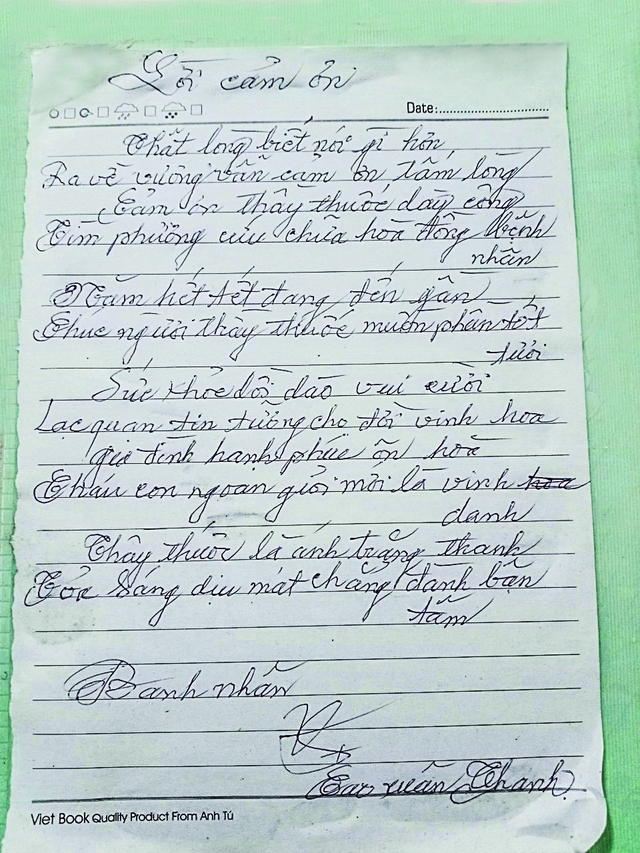 Lời cảm ơn
Date:
Thật lòng biết nói gì hơn
Ra về vương vấn cảm ơn tấm lòng
Cảm ơn thầy thuốc dày công
Tìm phương cứu chữa hòa đồng bệnh
nhân
Năm hết tết đang đến gần
Chúc người thầy thuốc muôn phần tốt
tươi
Sức khỏe dồi dào vui cười
Lạc quan tin tưởng cho đời vinh hoa
gia đình hạnh phúc ôn hòa
Cháu con ngoan giỏi mới là vinh hoa
danh
Thầy thuốc là ánh trăng thanh
Tỏa sáng dịu mát chẳng đành bận
tâm
Bệnh nhân
Cao xuân Thanh
Viet Book Quality Product From Anh Tú